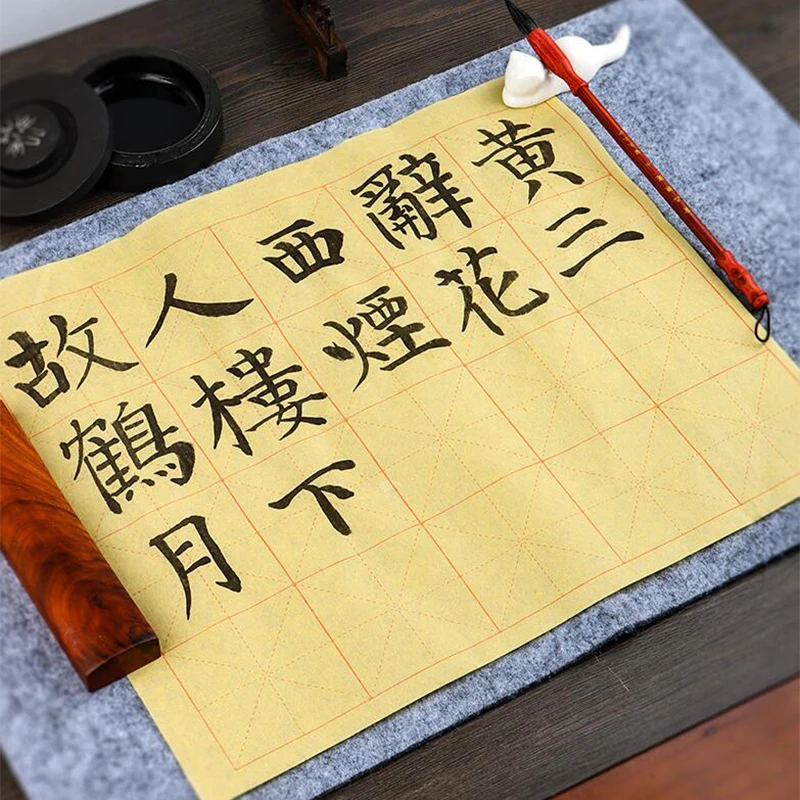 故人西辭黄
鶴樓煙花三
月下